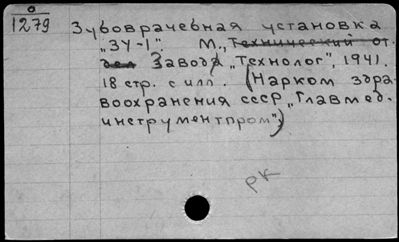 0
1279
Зубоврачебная установка
„ЗУ-1". М., Технический от-
дел Завода „Технолог", 1941.
18 стр. с илл. (Нарком здра-
воохранения СССР „Главмед.
инструментпром")
РК